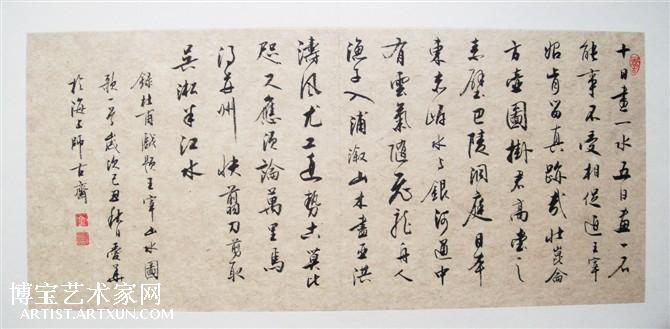 十日畫一水五日畫一石
能事不受相促迫王宰
始肯留真跡哉壯崑崙
方壺圖掛君高堂之
素壁巴陵洞庭日本
東赤岸水与銀河通中
有雲氣隨飛龍舟人
漁子入浦溆山木盡亞洪
濤風尤工遠勢古莫比
咫尺應須論萬里焉
得并州快翦刀剪取
吳淞半江水
錄杜甫戲題王宰山水圖
歌一首歲次己丑秋日愛華
於海上師古齋
博宝艺术家网
ARTIST.ARTXUN.COM